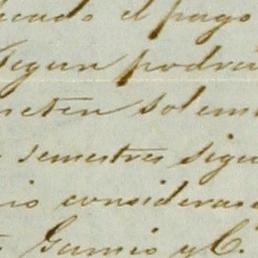 icado el pago
Segun podrá
meten solem
semestres sigu
io consideras
Gumio y C.